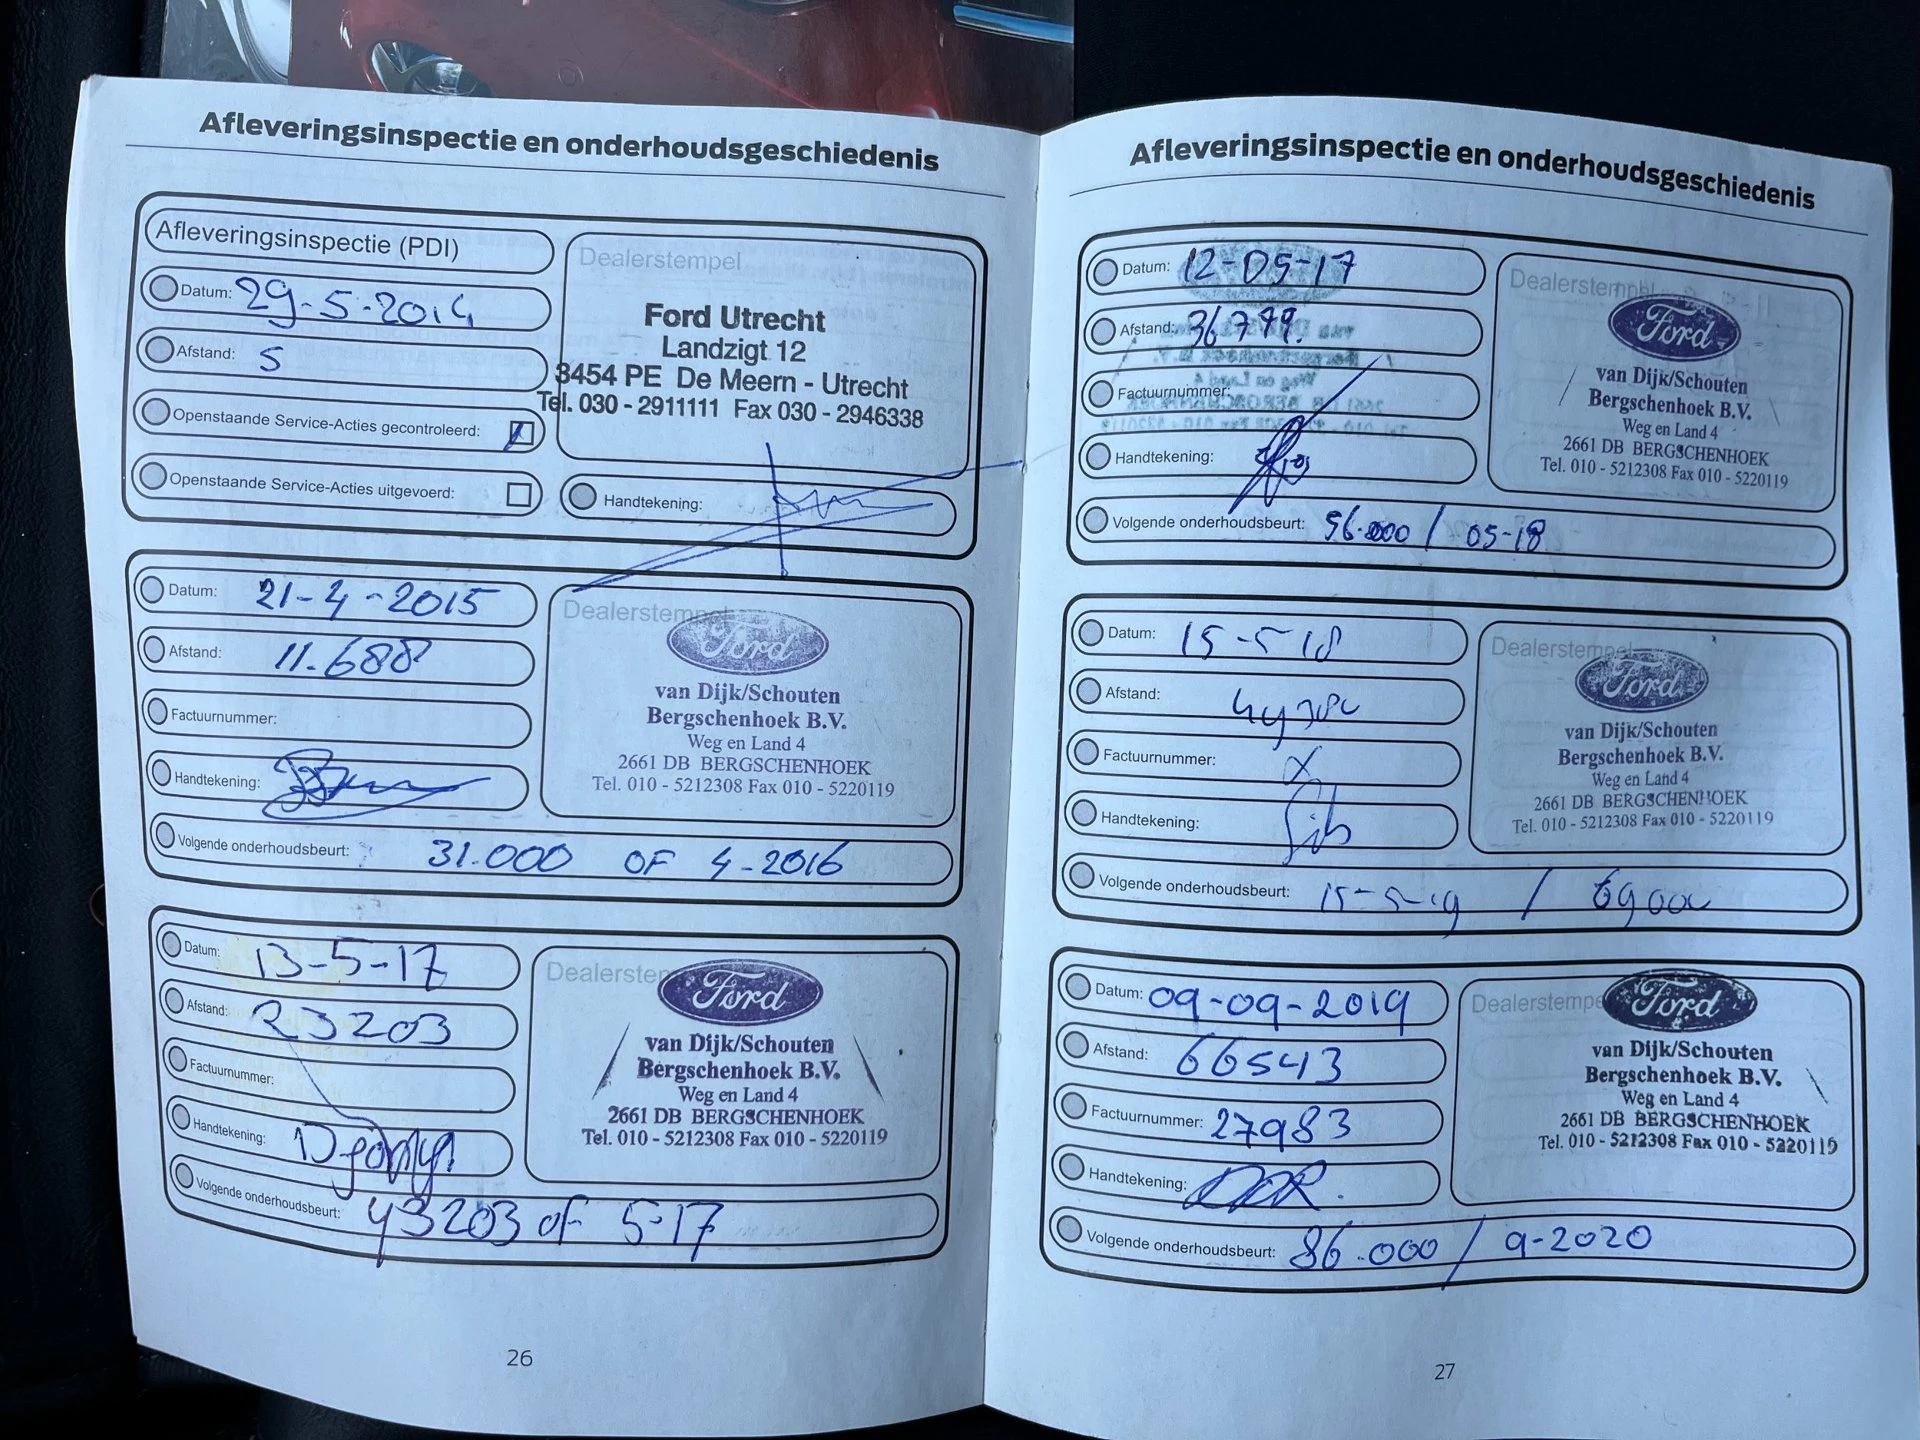 Afleveringsinspectie en onderhoudsgeschiedenis
Afleveringsinspectie (PDI)
Datum: 29-5-2014
Afstand: 5
Openstaande Service-Acties gecontroleerd:
Openstaande Service-Acties uitgevoerd:
Dealerstempel
Ford Utrecht
Landzigt 12
3454 PE De Meern - Utrecht
Tel. 030 - 2911111 Fax 030 - 2946338
Handtekening:
Datum: 21-4-2015
Afstand: 11.688
Factuurnummer:
Handtekening:
Dealerstempel
Ford
van Dijk/Schouten
Bergschenhoek B.V.
Weg en Land 4
2661 DB BERGSCHENHOEK
Tel. 010 - 5212308 Fax 010 - 5220119
Volgende onderhoudsbeurt: 31.000 OF 4-2016
Datum: 13-5-17
Afstand: 23203
Factuurnummer:
Handtekening:
Dealerstempel
Ford
van Dijk/Schouten
Bergschenhoek B.V.
Weg en Land 4
2661 DB BERGSCHENHOEK
Tel. 010 - 5212308 Fax 010 - 5220119
Volgende onderhoudsbeurt: 43203 of 5-17
26
Afleveringsinspectie en onderhoudsgeschiedenis
Datum: 12-05-17
Afstand: 36779.
Factuurnummer:
Handtekening:
Dealerstempel
Ford
van Dijk/Schouten
Bergschenhoek B.V.
Weg en Land 4
2661 DB BERGSCHENHOEK
Tel. 010 - 5212308 Fax 010 - 5220119
Volgende onderhoudsbeurt: 56.000 / 05-18
Datum: 15-5-18
Afstand:
Factuurnummer: X
Handtekening:
Dealerstempel
Ford
van Dijk/Schouten
Bergschenhoek B.V.
Weg en Land 4
2661 DB BERGSCHENHOEK
Tel. 010 - 5212308 Fax 010 - 5220119
Volgende onderhoudsbeurt: 15-5-19 / 69000
Datum: 09-09-2019
Afstand: 66543
Factuurnummer: 27983
Handtekening:
Dealerstempel
Ford
van Dijk/Schouten
Bergschenhoek B.V.
Weg en Land 4
2661 DB BERGSCHENHOEK
Tel. 010 - 5212308 Fax 010 - 5220119
Volgende onderhoudsbeurt: 86.000 / 9-2020
27